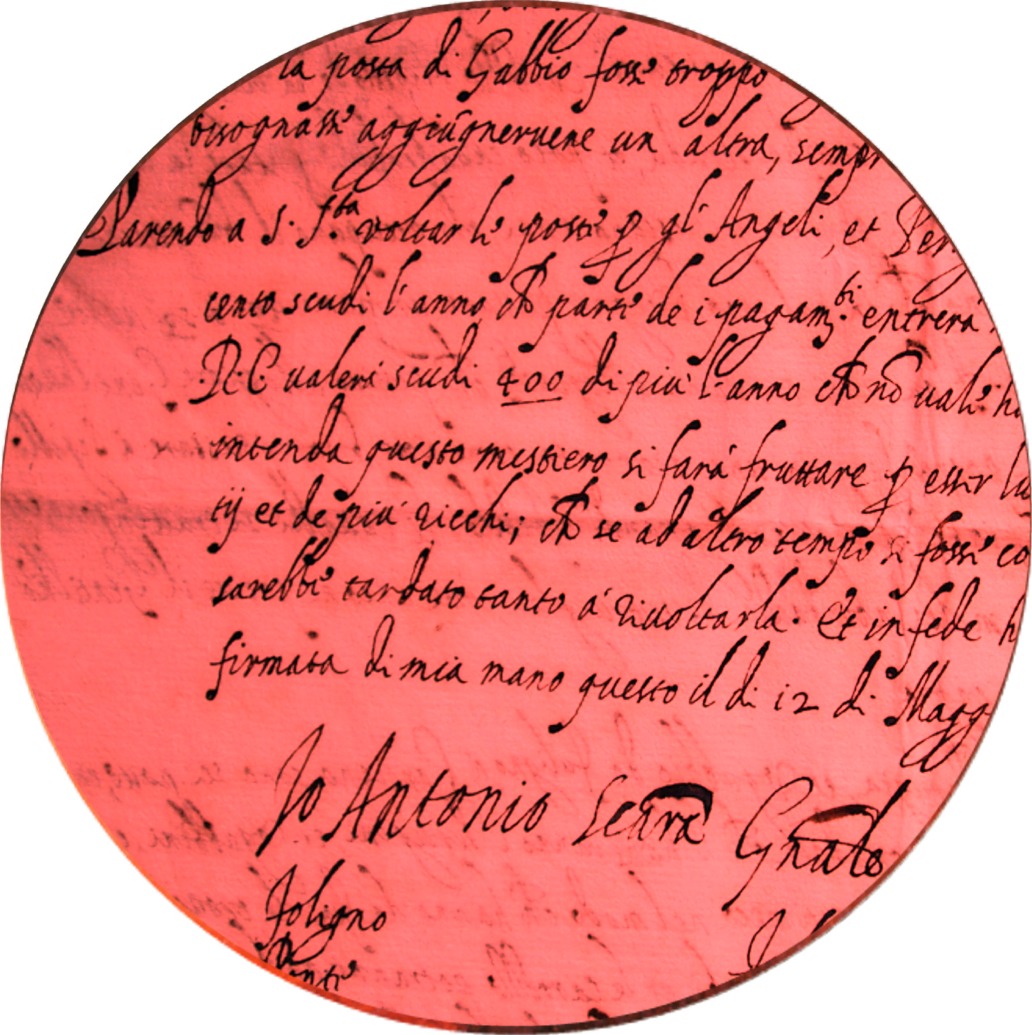 la posta di Gubbio fosse troppo
bisognasse aggiugnervene un altra, sempr
Parendo a S. S.ta voltar le poste p gl' Angeli, et Per
cento scudi l'anno ch parte de i pagam.ti entrerà
R. C. valerà scudi 400 di più l'anno ch nō vale h
intenda questo mestiero si farà fruttare p esser lu
tij et de più ricchi; ch se ad altro tempo si fosse co
sarebbe tardato tanto à rivoltarla. Et in fede h
firmata di mia mano questo il di 12 di Magg
Io Antonio Scara Gnale
Foligno